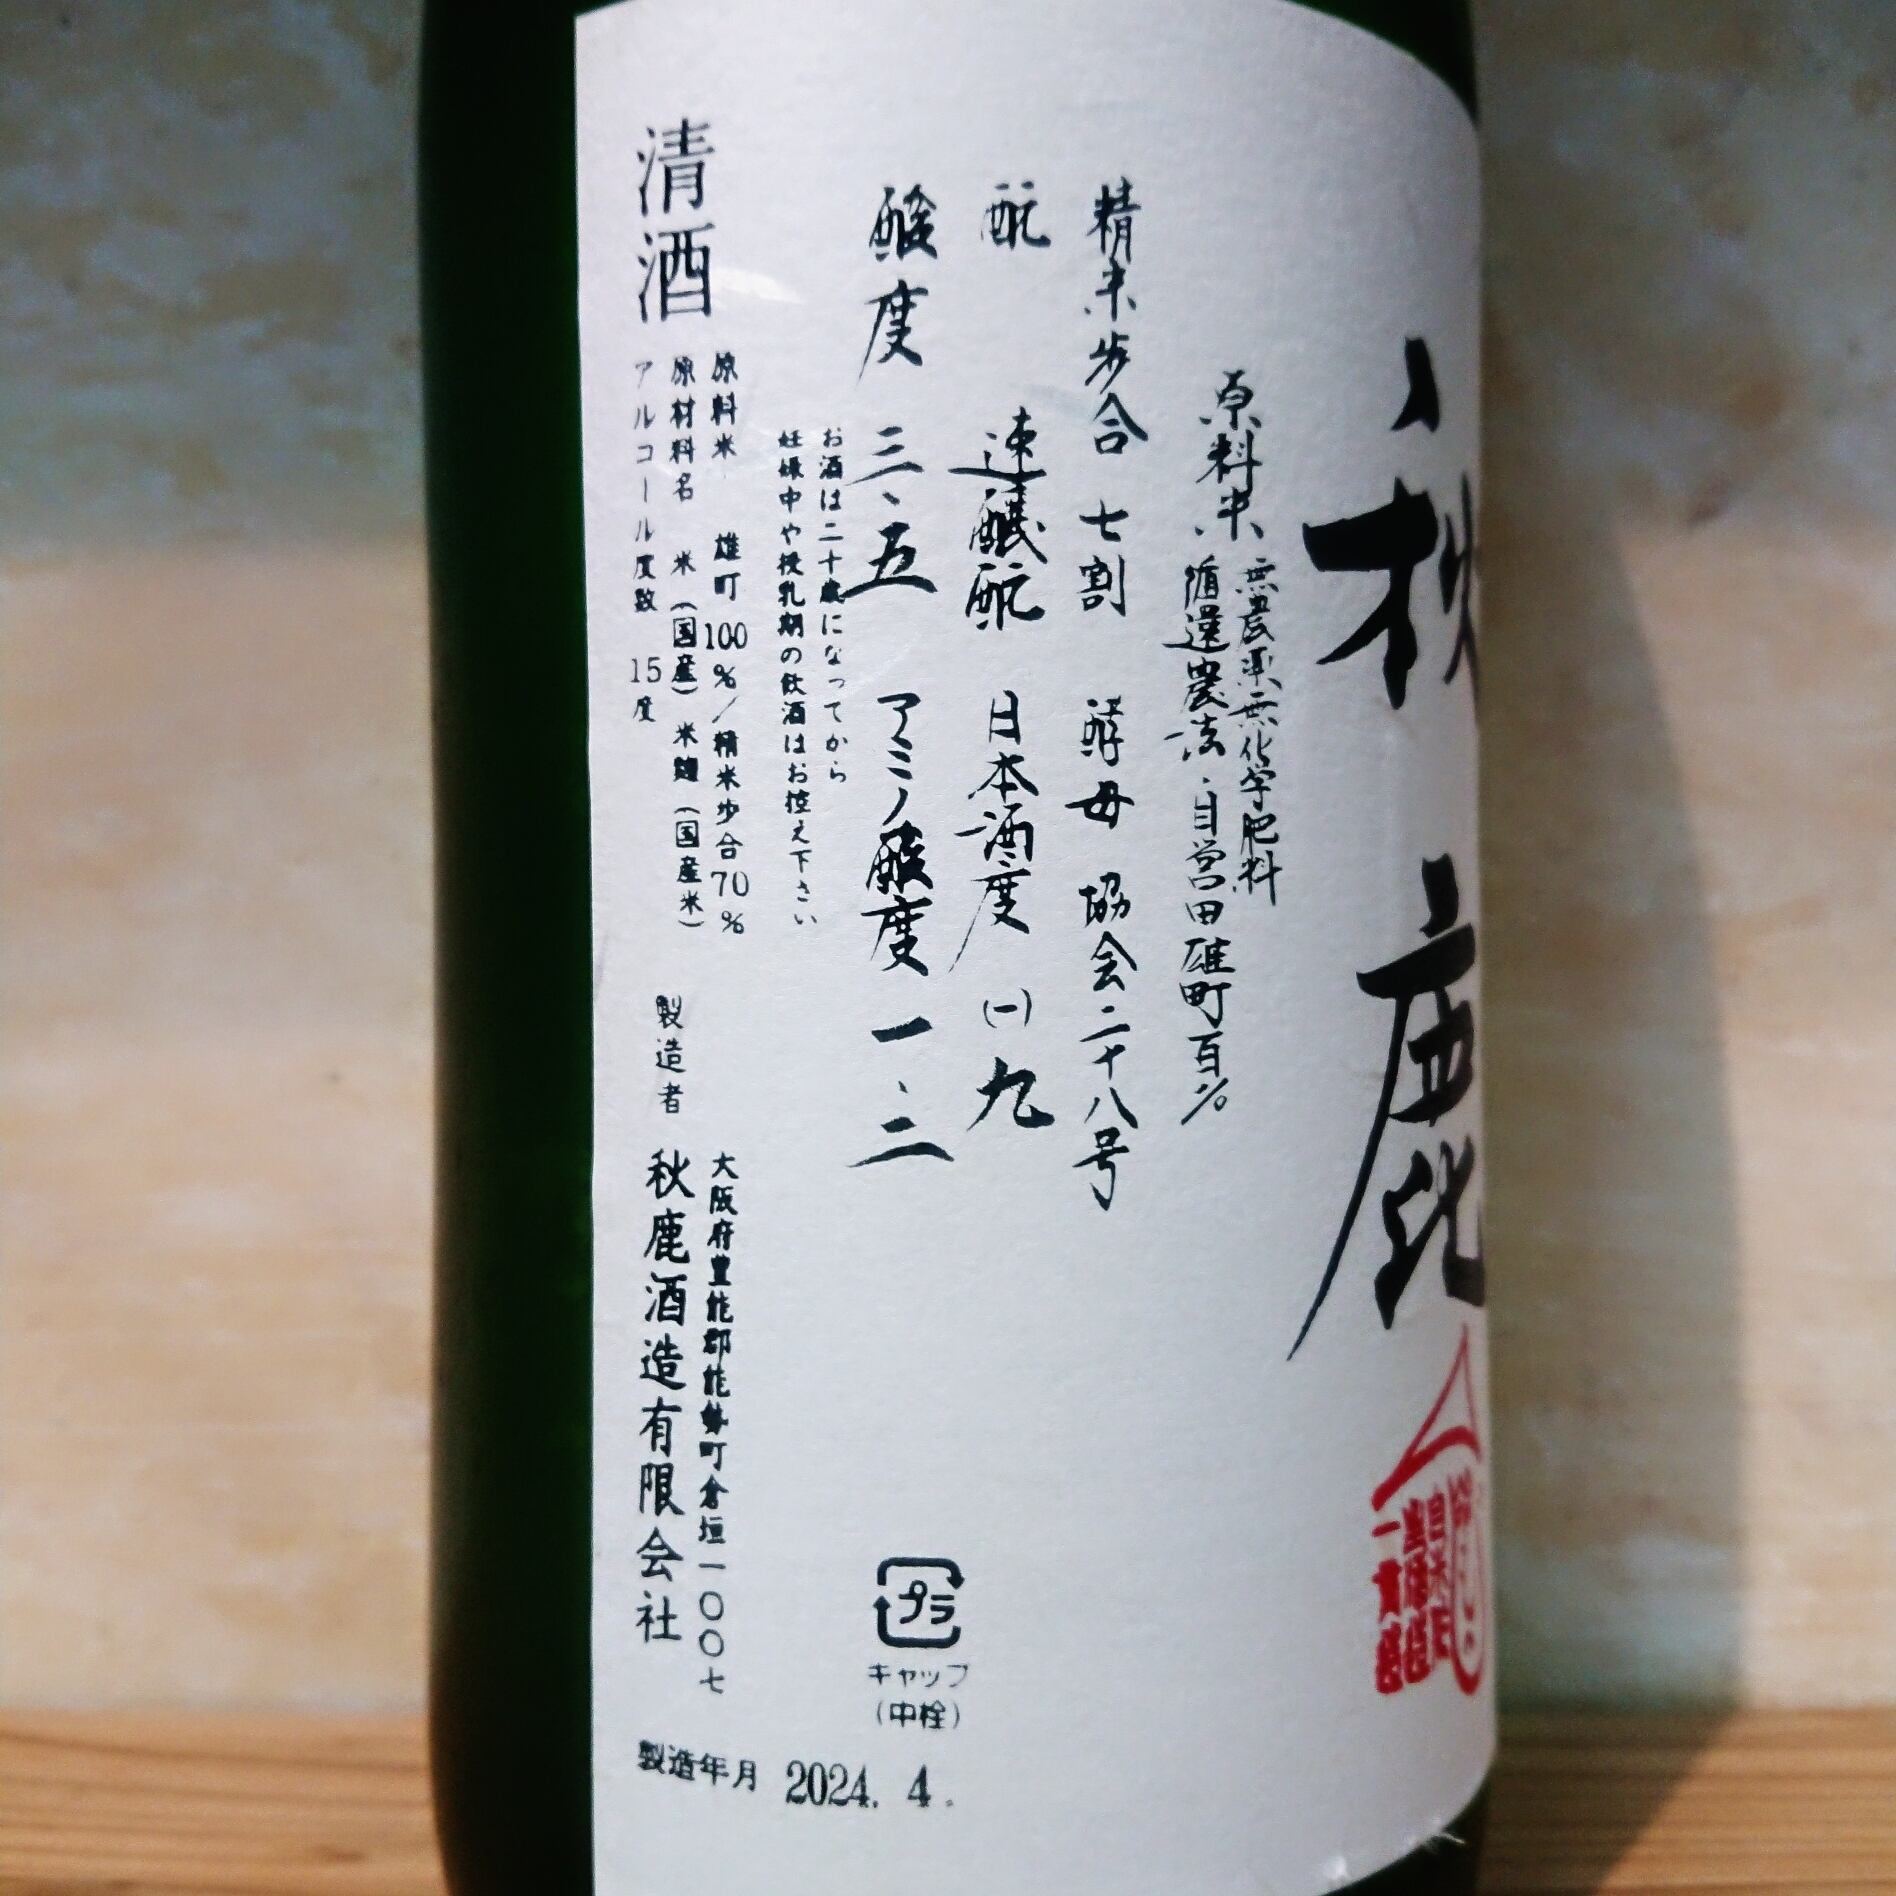 秋鹿
無農薬無化学肥料
原料米 循環農法・自営田雄町百%
精米歩合 七割 酵母 協会二十八号
酛 速醸酛 日本酒度 (一)九
酸度 三、五 アミノ酸度 一、二
お酒は二十歳になってから
妊娠中や授乳期の飲酒はお控え下さい
清酒
原料米 雄町100%/精米歩合70%
原材料名 米(国産) 米麹(国産米)
アルコール度数 15度
製造者
大阪府豊能郡能勢町倉垣一〇〇七
秋鹿酒造有限会社
プラ
キャップ
(中栓)
製造年月 2024. 4.
一貫造